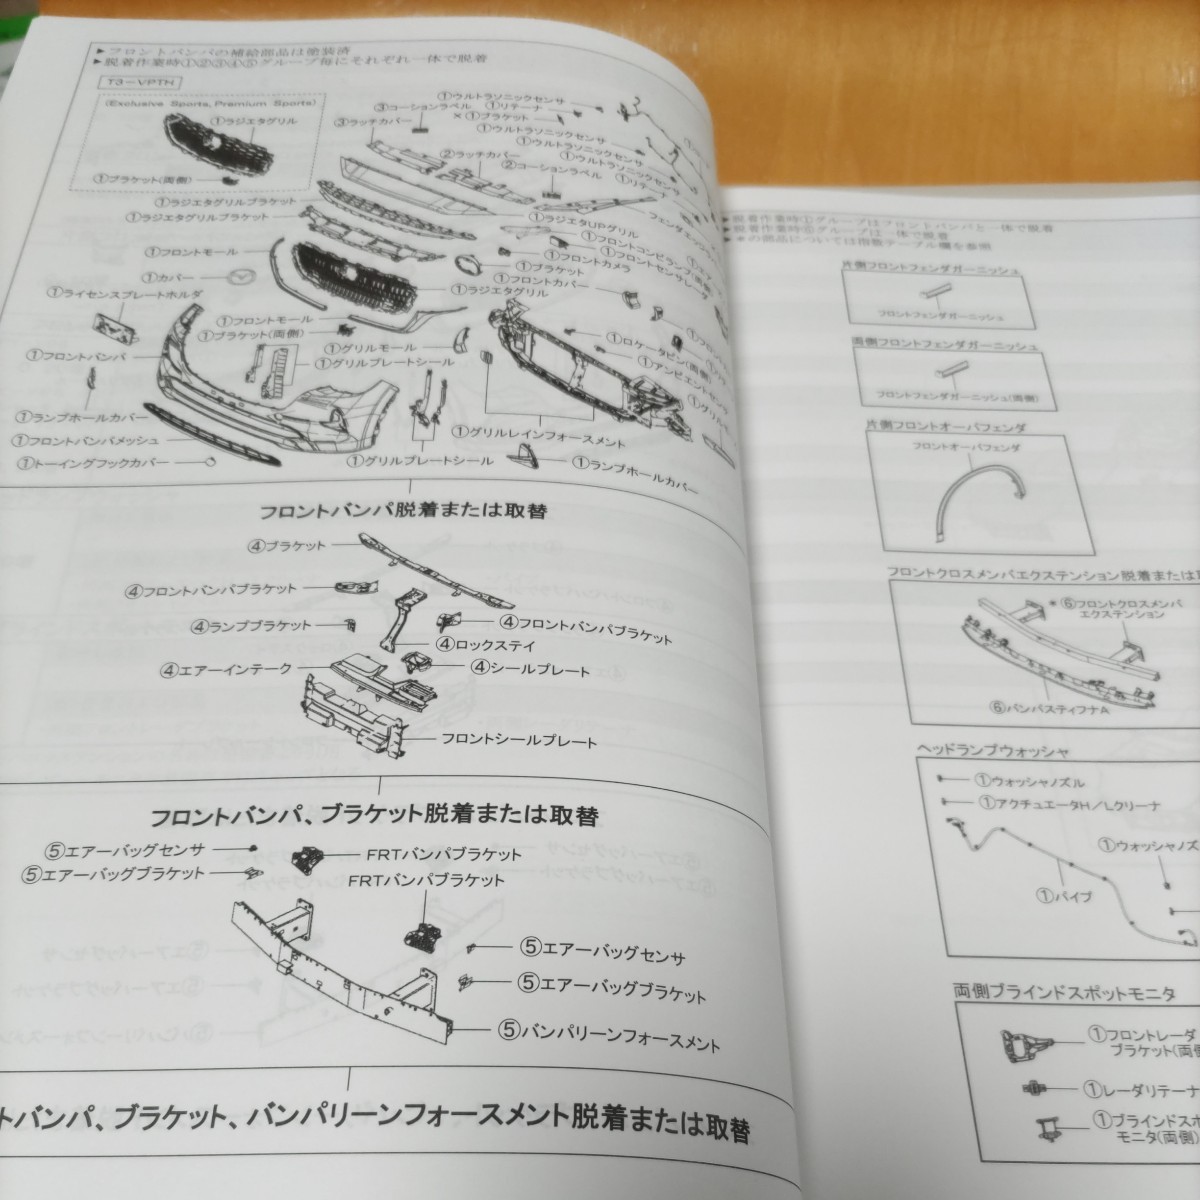 ▶フロントバンパの補給部品は塗装済
▶脱着作業時①②③④⑤グループ毎にそれぞれ一体で脱着
T3-VPTH
(Exclusive Sports, Premium Sports)
①ラジエタグリル
①ブラケット(両側)
①ウルトラソニックセンサ
③コーションラベル
①リテーナ
③ラッチカバー
×①ブラケット
①ウルトラソニックセンサ
①ウルトラソニックセンサ
②ラッチカバー
①ウルトラソニックセンサ
②コーションラベル
①リテーナ
①ラジエタグリルブラケット
①ラジエタグリルブラケット
①ラジエタUPグリル
①フロントモール
①フロントカメラ
①フロントセンサレーダ
①カバー
①ブラケット
①フロントカバー
①ライセンスプレートホルダ
①ラジエタグリル
①フロントモール
①ブラケット(両側)
①グリルモール
①ロケータピン(両側)
①フロントバンパ
①グリルプレートシール
①アンビエントセンサ
①ランプホールカバー
①フロントバンパメッシュ
①グリルレインフォースメント
①トーイングフックカバー
①グリルプレートシール
①ランプホールカバー
フロントバンパ脱着または取替
④ブラケット
④フロントバンパブラケット
④ランプブラケット
④フロントバンパブラケット
④ロックステイ
④エアーインテーク
④シールプレート
フロントシールプレート
フロントバンパ、ブラケット脱着または取替
⑤エアーバッグセンサ
FRTバンパブラケット
⑤エアーバッグブラケット
FRTバンパブラケット
⑤エアーバッグセンサ
⑤エアーバッグブラケット
⑤バンパリーンフォースメント
トバンパ、ブラケット、バンパリーンフォースメント脱着または取替
▶脱着作業時①グループはフロントバンパと一体で脱着
▶脱着作業時⑥グループは一体で脱着
▶＊の部品については指数テーブル欄を参照
片側フロントフェンダガーニッシュ
フロントフェンダガーニッシュ
両側フロントフェンダガーニッシュ
フロントフェンダガーニッシュ(両側)
片側フロントオーバフェンダ
フロントオーバフェンダ
フロントクロスメンバエクステンション脱着または
＊⑥フロントクロスメンバ
エクステンション
⑥バンパスティフナA
ヘッドランプウォッシャ
①ウォッシャノズル
①アクチュエータH／Lクリーナ
①ウォッシャノズ
①パイプ
両側ブラインドスポットモニタ
①フロントレーダ
ブラケット(両側
①レーダリテーナ
①ブラインドスポ
モニタ(両側)